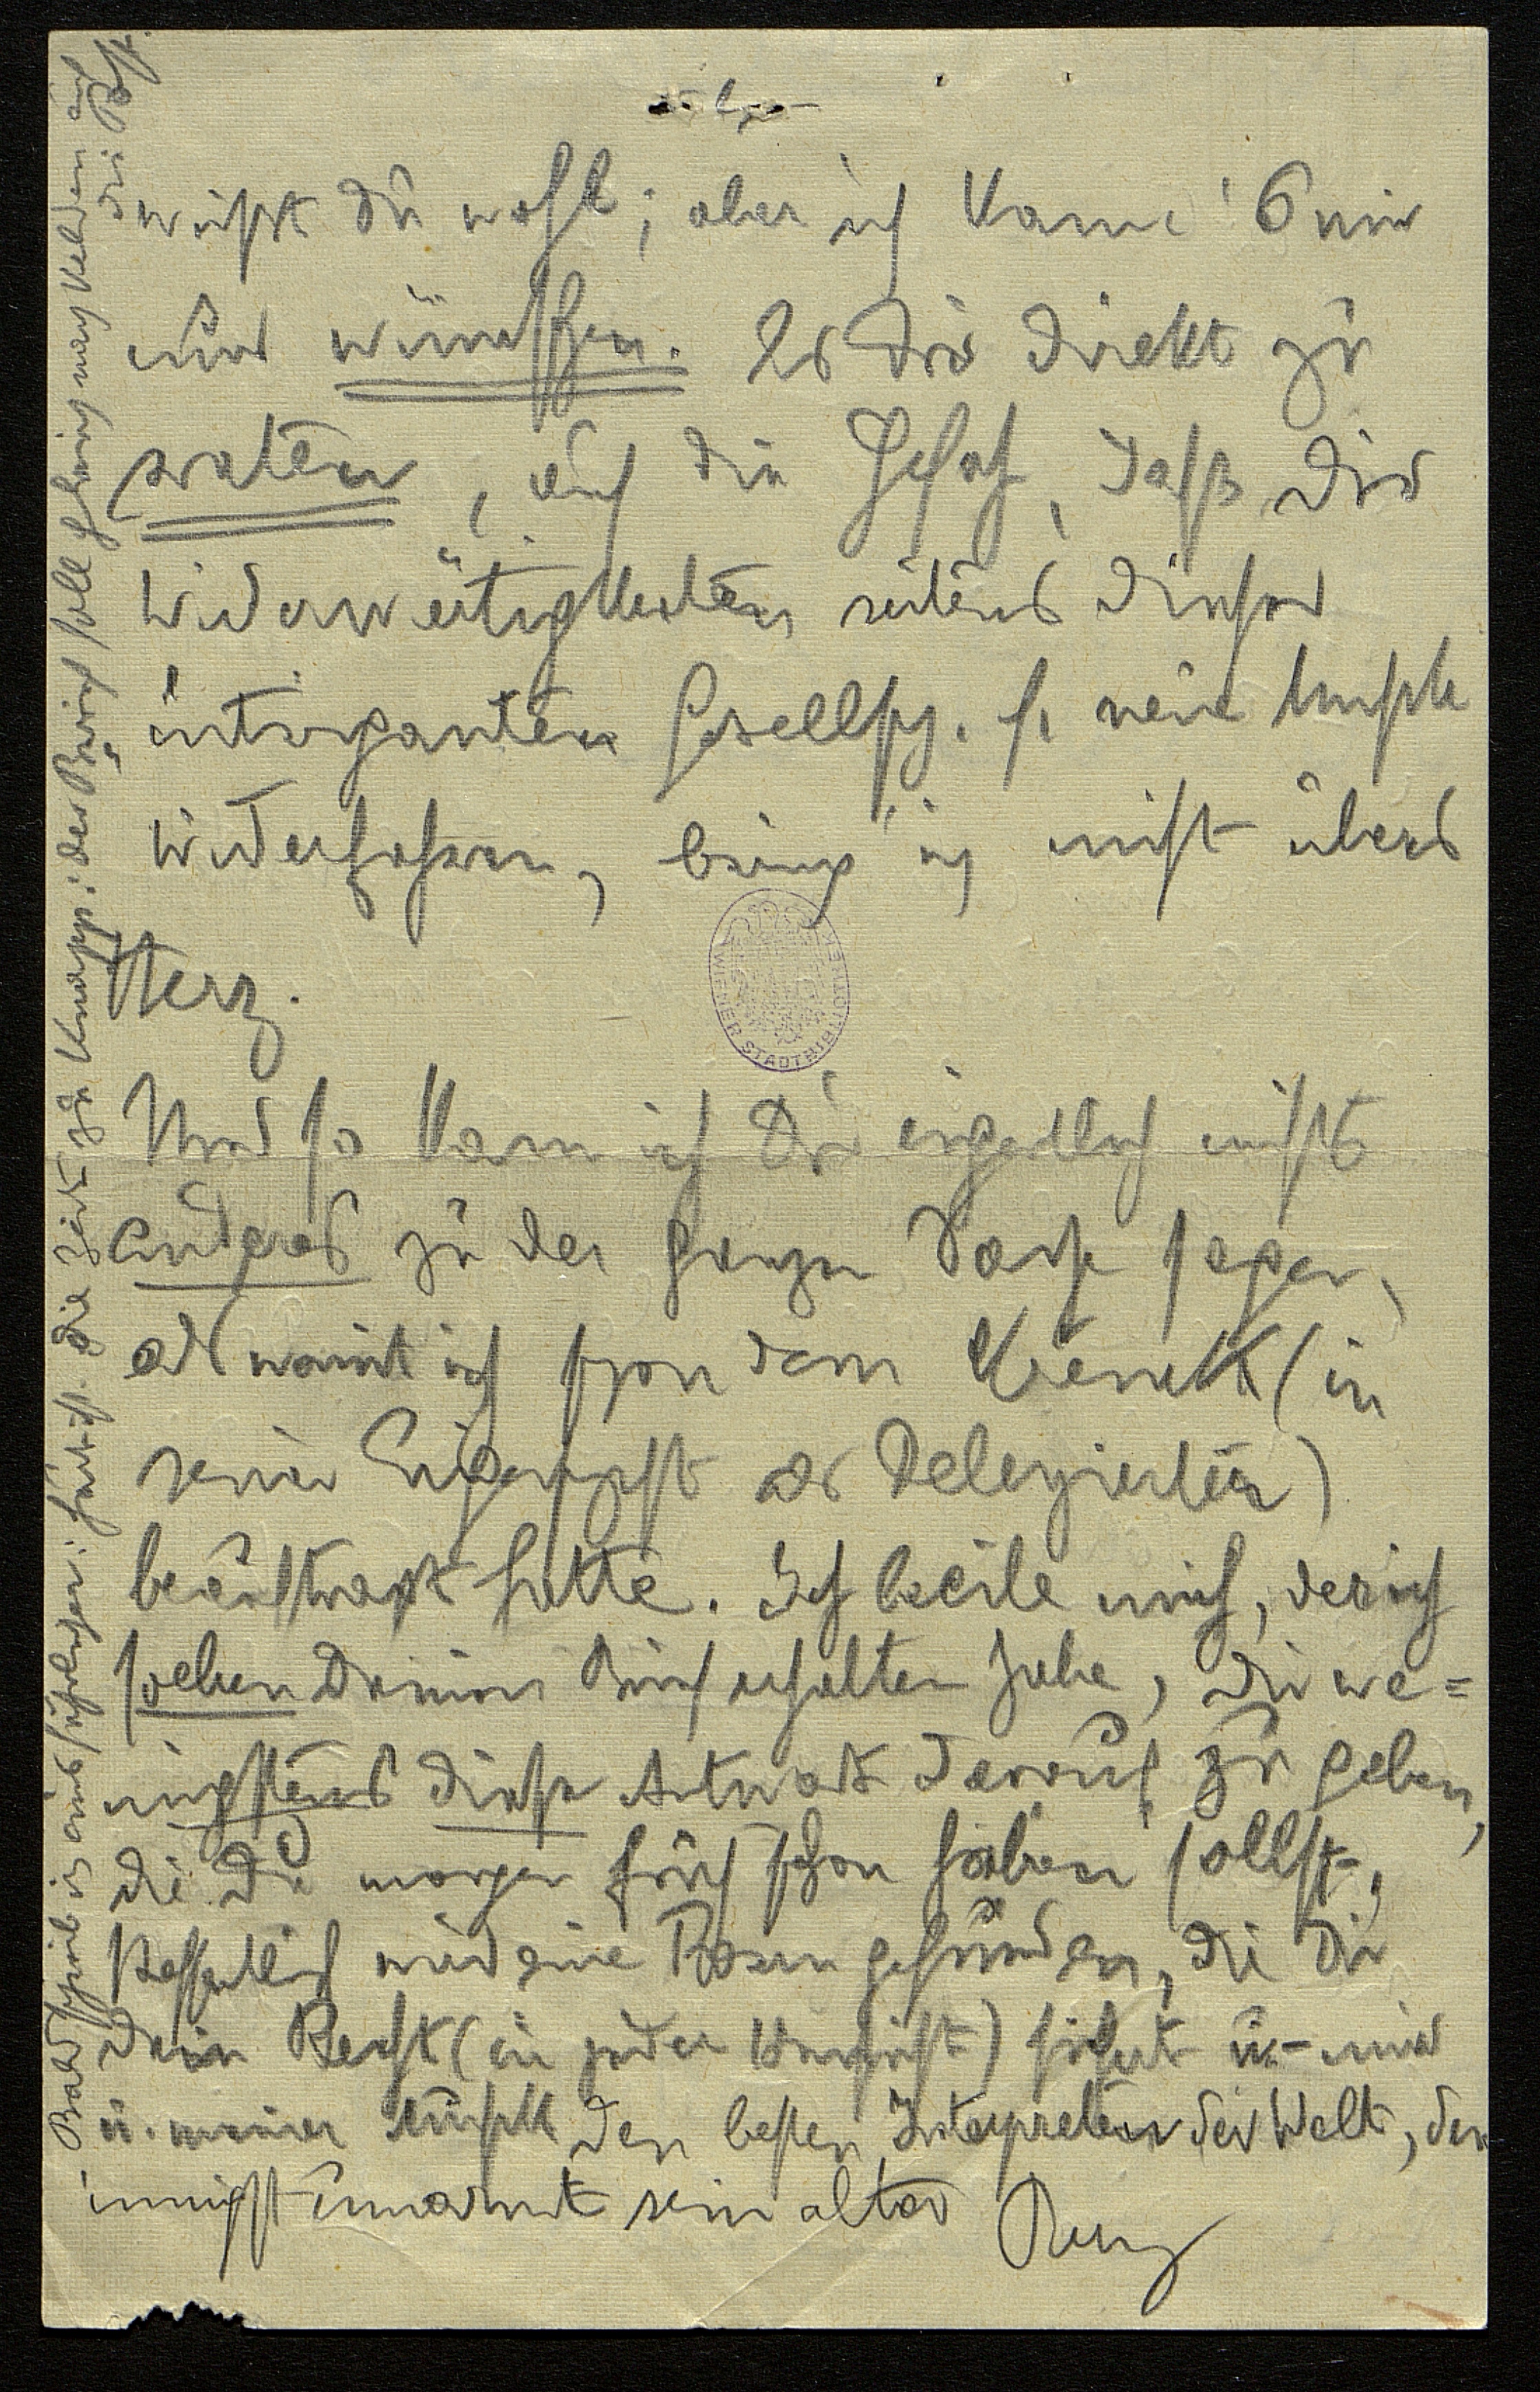 weißt Du wohl; aber ich kann's mir
nur wünschen. Es Dir direkt zu
raten, auf die Gefahr, daß Dir
Widerwärtigkeiten seitens dieser
intriganten Gesellsch. f. neue Musik
widerfahren, bring' ich nicht übers
Herz.
Und so kann ich Dir eigentlich nichts
anderes zu der ganzen Sache sagen,
als womit ich schon den Krenek (in
seiner Eigenschaft als Delegierten)
beauftragt hatte. Ich beeile mich, der ich
soeben Deinen Brief erhalten habe, Dir we=
nigstens diese Antwort darauf zu geben,
die Du morgen früh schon haben sollst,
hoffentlich wird eine Lösung gefunden, die Dir
Dein Recht (in jeder Hinsicht) sichert u. mir
u. meiner Musik den besten Interpreten der Welt, den
innigst umarmt sein alter Berg
- Bald schreib ich ausführlicher: heute ist die Zeit zu knapp: der Brief soll gleich nach Velden auf
die Post.
WIENER STADTBIBLIOTHEK